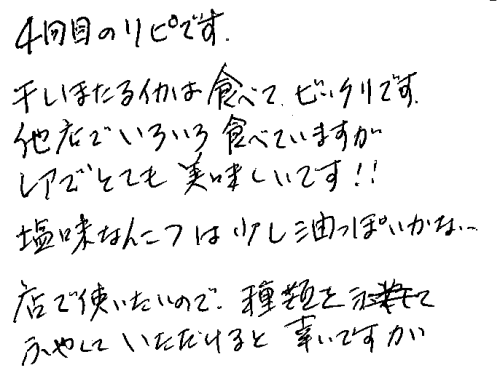 4回目のリピです.
干しほたるイカは食べて.ビックリです.
他店でいろいろ食べていますが
レアでとても美味しいです!!
塩味なんこつは少し油っぽいかな…
店で使いたいので.種類を
ふやして いただけると 幸いですが